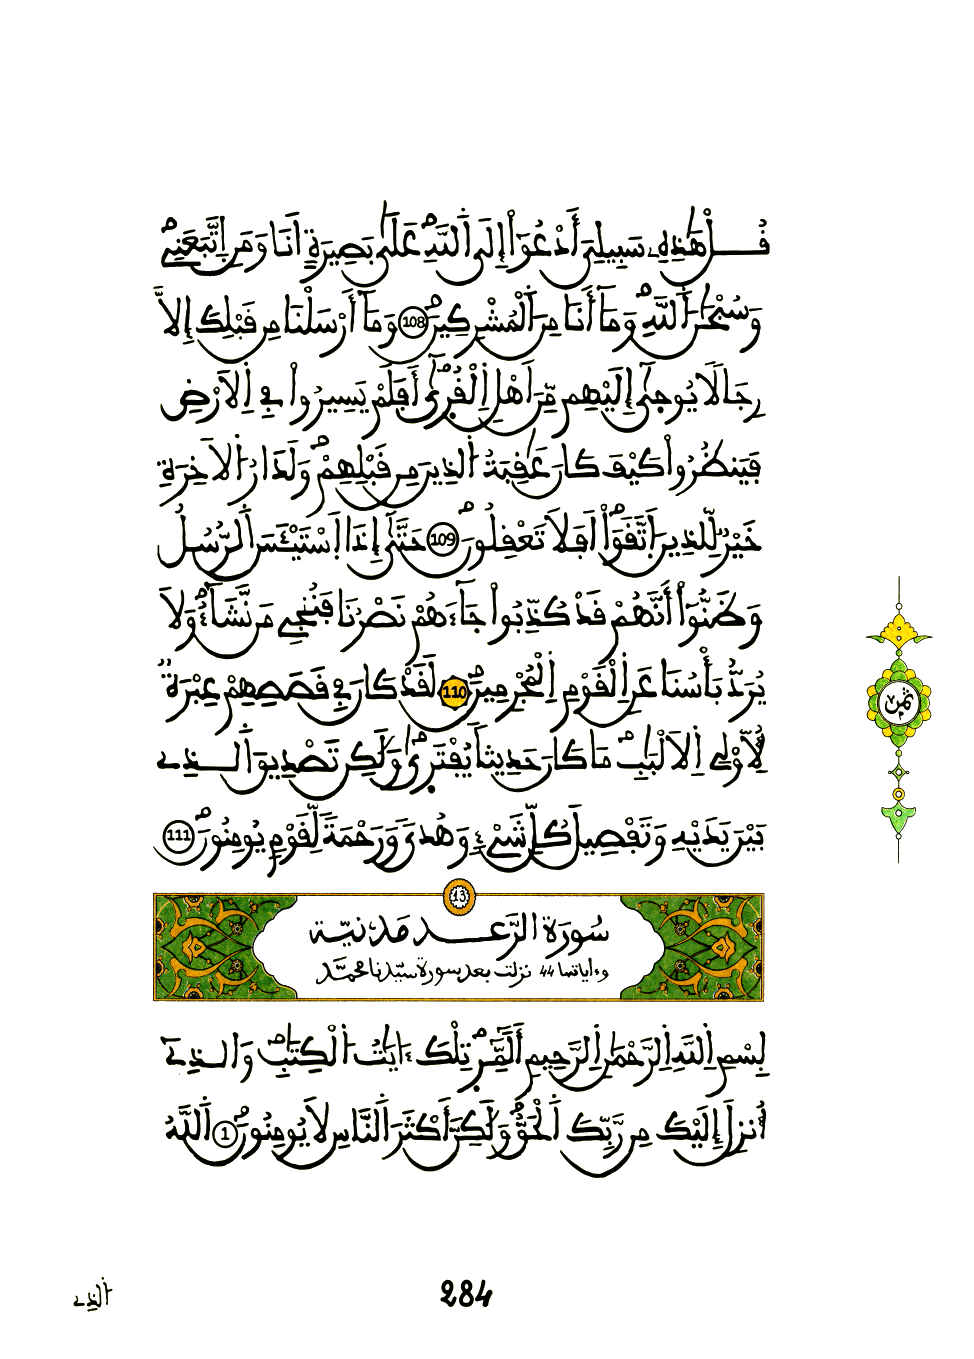 قُلْ هَٰذِهِۦ سَبِيلِيَ أَدْعُوٓاْ إِلَى اَ۬للَّهِۖ عَلَىٰ بَصِيرَةٍ اَنَا وَمَنِ اِ۪تَّبَعَنِےۖ
وَسُبْحَٰنَ اَ۬للَّهِۖ وَمَآ أَنَا مِنَ اَ۬لْمُشْرِكِينَۖ 108 وَمَآ أَرْسَلْنَا مِن قَبْلِكَ إِلَّا
رِجَالاٗ يُوح۪ىٰٓ إِلَيْهِم مِّنَ اَهْلِ اِ۬لْقُر۪ىٰٓۖ أَفَلَمْ يَسِيرُواْ فِے اِ۬لَارْضِ
فَيَنظُرُواْ كَيْفَ كَانَ عَٰقِبَةُ اُ۬لذِينَ مِن قَبْلِهِمْۖ وَلَدَارُ اُ۬لَاخِرَةِ
خَيْرٞ لِّلذِينَ اَ۪تَّقَوَاْۖ اَفَلَا تَعْقِلُونَۖ 109 حَتَّىٰٓ إِذَا اَ۪سْتَيْـَٔسَ اَ۬لرُّسُلُ
وَظَنُّوٓاْ أَنَّهُمْ قَدْ كُذِّبُواْ جَآءَهُمْ نَصْرُنَا فَنُنجِے مَن نَّشَآءُۖ وَلَا
يُرَدُّ بَأْسُنَا عَنِ اِ۬لْقَوْمِ اِ۬لْمُجْرِمِينَۖ 110 لَقَدْ كَانَ فِے قَصَصِهِمْ عِبْرَةٞ
لِّأُوْلِے اِ۬لَالْبَٰبِۖ مَا كَانَ حَدِيثاٗ يُفْتَر۪ىٰۖ وَلَٰكِن تَصْدِيقَ اَ۬لذِے
بَيْنَ يَدَيْهِ وَتَفْصِيلَ كُلِّ شَےْءٖ وَهُدىٗ وَرَحْمَةٗ لِّقَوْمٖ يُومِنُونَۖ 111
13
سُورَةُ الرَّعْدِ مَدَنِيَّة
وءاياتها 44 نزلت بعد سورة سيّدنا محمّد
ثمن
بِسْمِ اِ۬للَّهِ اِ۬لرَّحْمَٰنِ اِ۬لرَّحِيمِ أَلَٓمِّٓرۖ تِلْكَ ءَايَٰتُ اُ۬لْكِتَٰبِۖ وَالذِےٓ
أُنزِلَ إِلَيْكَ مِن رَّبِّكَ اَ۬لْحَقُّۖ وَلَٰكِنَّ أَكْثَرَ اَ۬لنَّاسِ لَا يُومِنُونَۖ 1 اَ۬للَّهُ
284
اُ۬لذِے